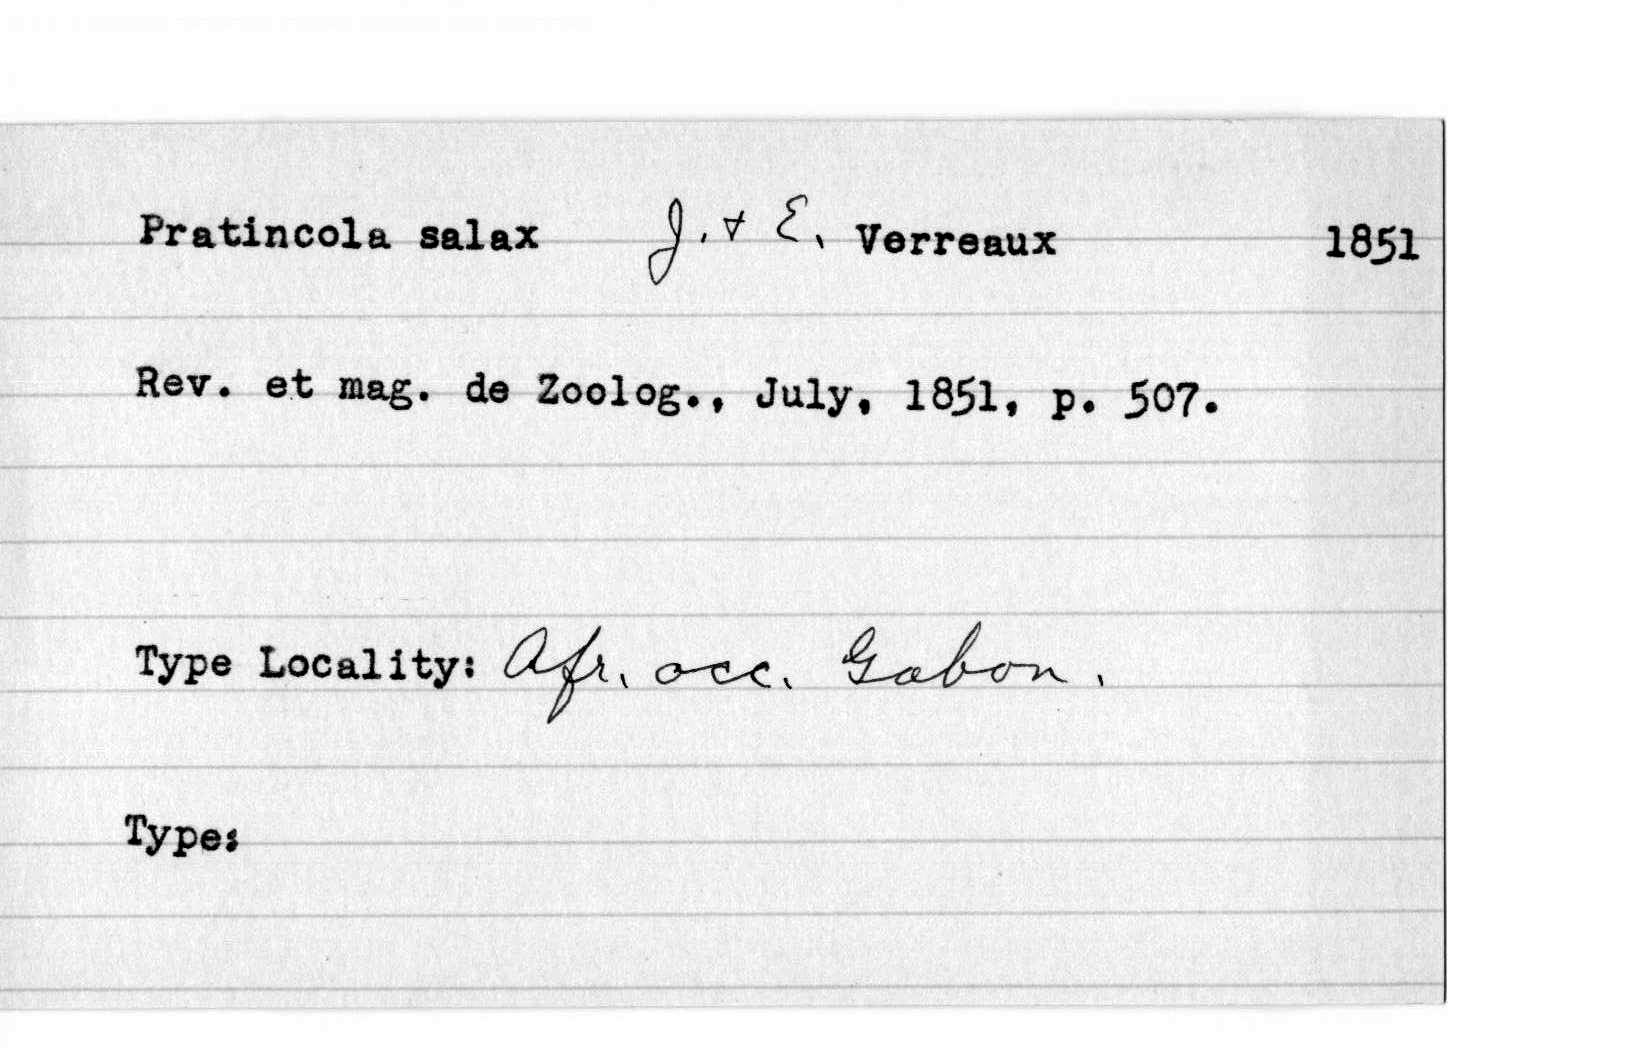 Pratincola salax J. & E. Verreaux 1851
Rev. et mag. de Zoolog., July, 1851, p. 507.
Type Locality: Afr. occ. Gabon.
Type: